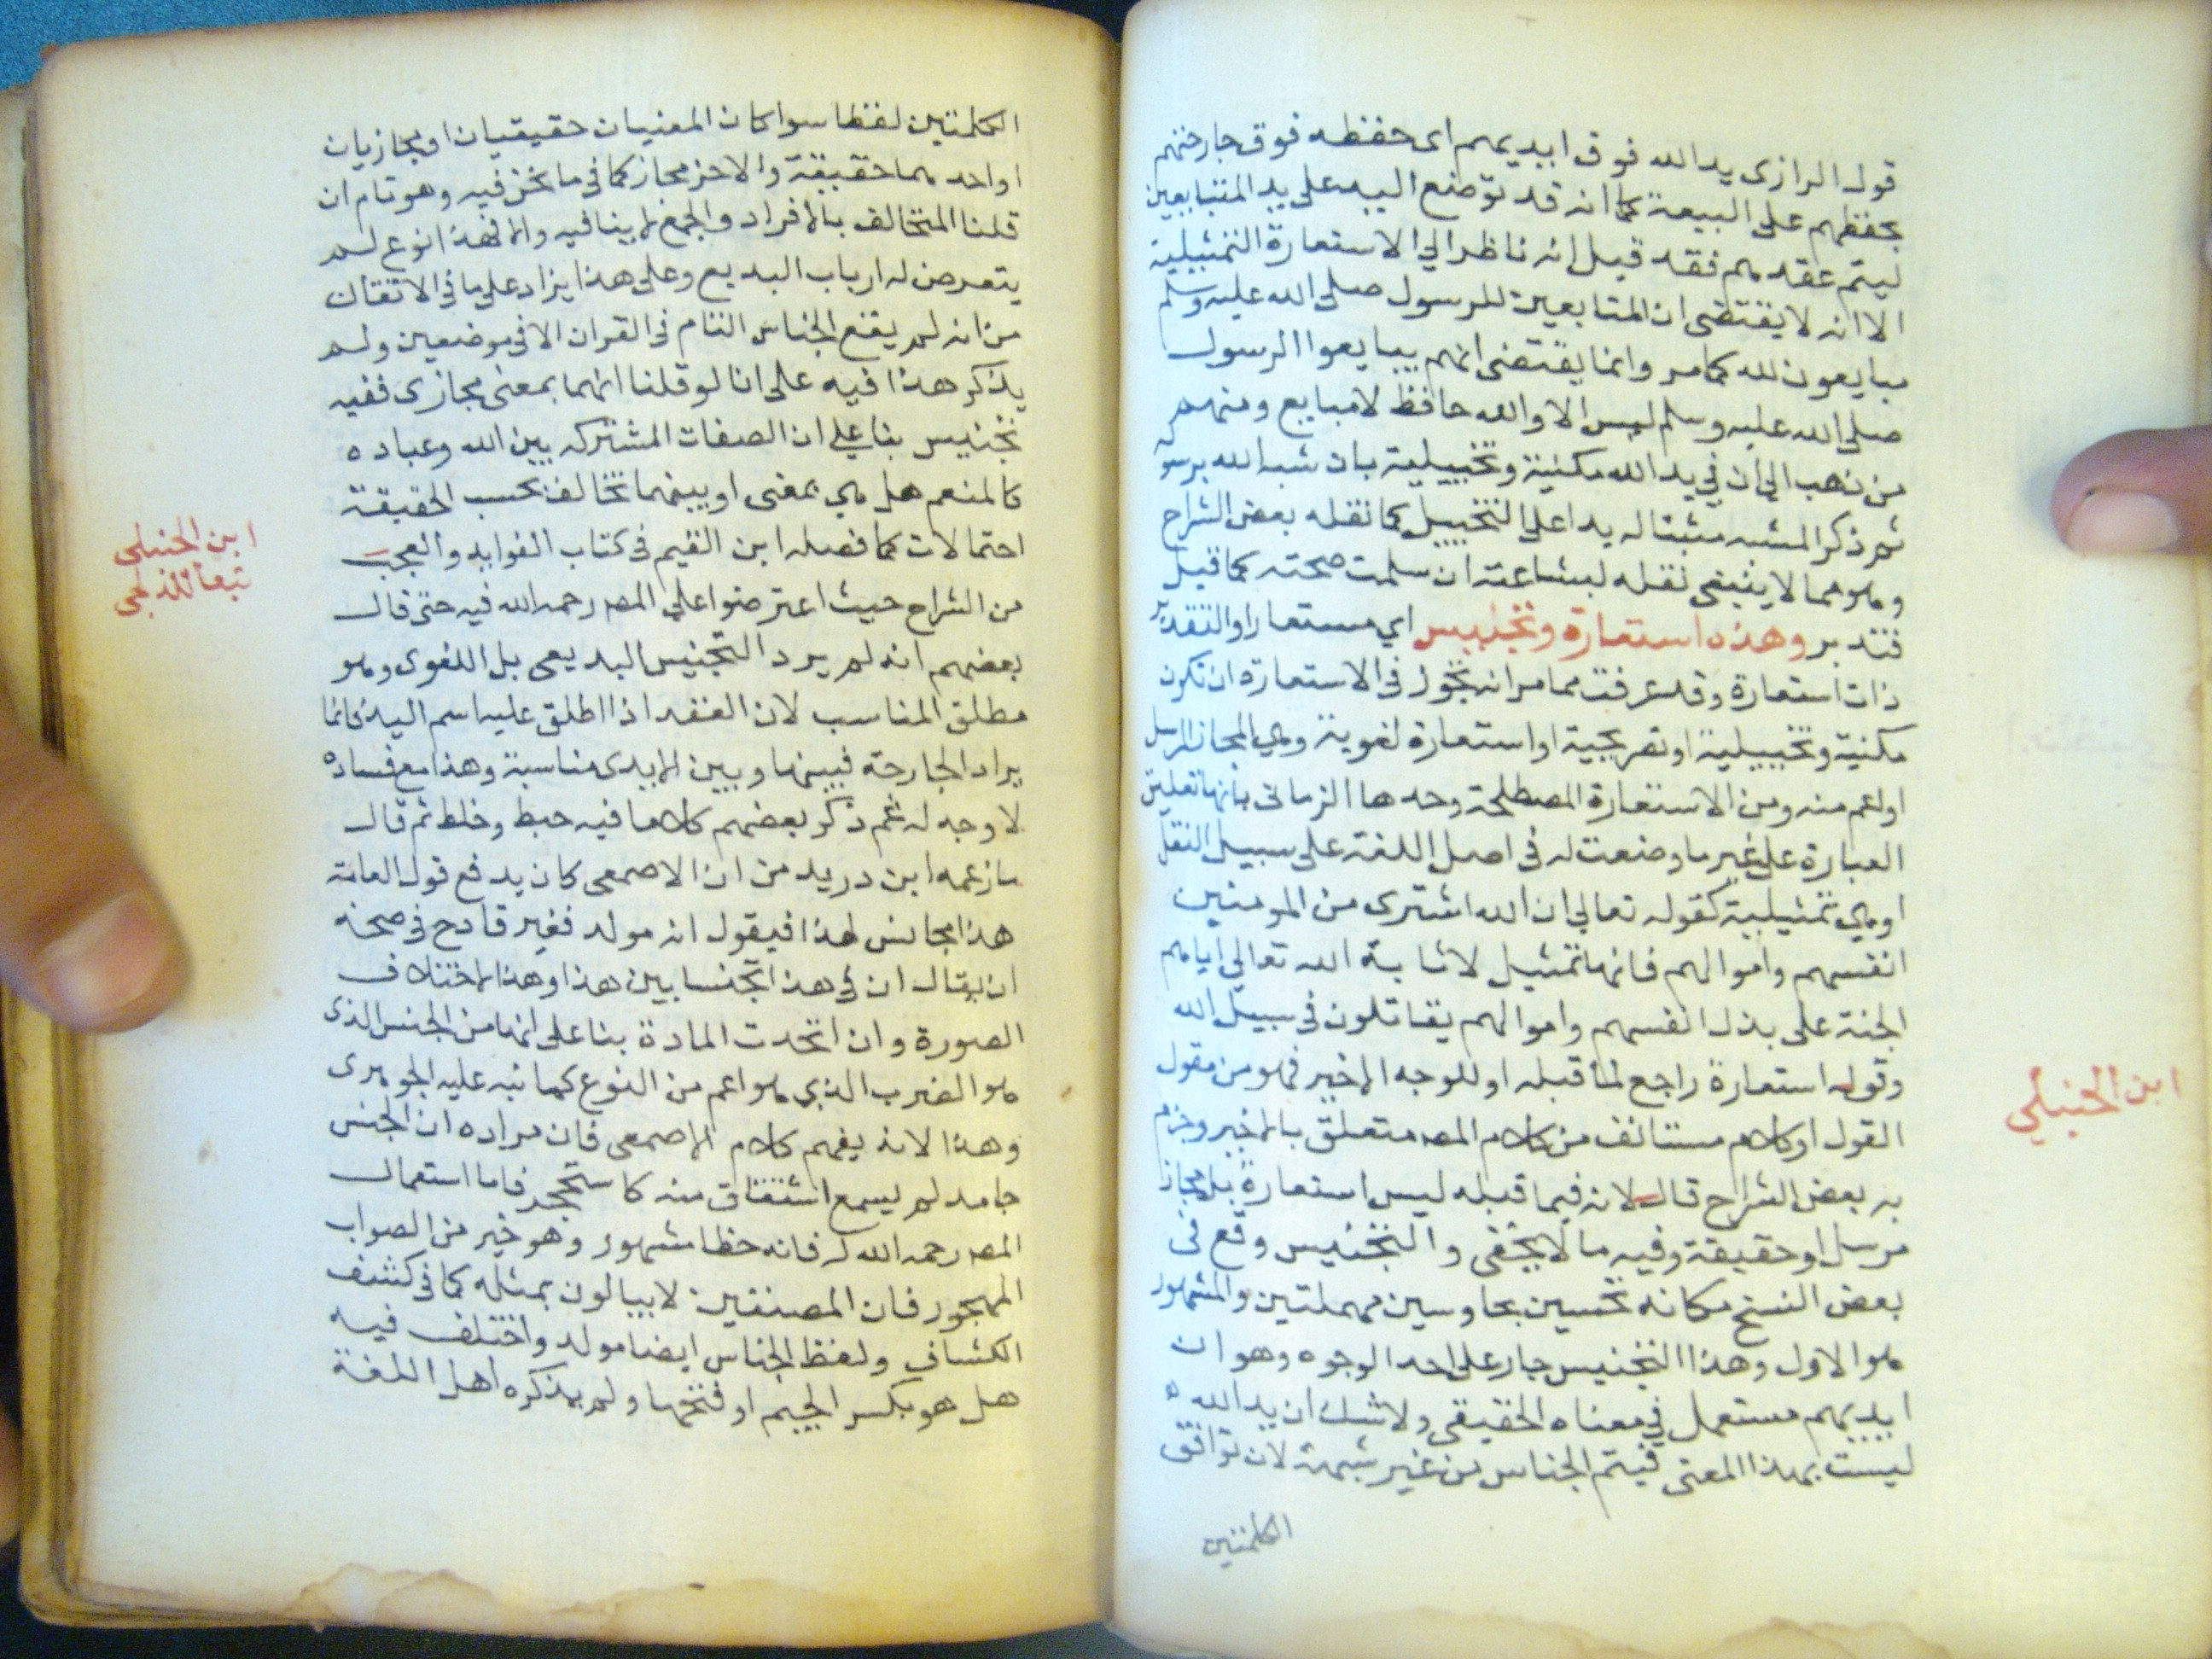 قول الرازى يد الله فوق ايديهم اى حفظه فوق جارحتهم
بحفظهم على البيعة كما انه قد توضع اليد على يد المتبايعين
ليتم عقدهم فقد قيل انه ناظر الي الاستعارة التمثيلية
الا انه لا يقتضى ان المتابعين للرسول صلى الله عليه وسلم
مبايعون لله كما مر وانما يقتضى انهم يبايعوا الرسول
صلى الله عليه وسلم ليس الا والله حافظ لا مبايع ومنهم
من ذهب الي ان في يد الله مكنية وتخييلية بان شبه الله برسوله
ثم ذكر المشبه مثبتا له يدا على التخييل كما نقله بعض الشراح
وهو مما لا ينبغى نقله لبشاعته ان سلمت صحته كما قيل
فتدبر وهذه استعارة وتجنيس اي مستعار او التقدير
ذات استعارة وقد عرفت مما مر انه يجوز فى الاستعارة ان تكون
مكنية وتخييلية او تصريحية او استعارة لغوية وهي المجاز المرسل
او اعم منه ومن الاستعارة المصطلحة وحدها الزمانى بانها تعليق
العبارة على غير ما وضعت له فى اصل اللغة على سبيل النقل
او هي تمثيلية كقوله تعالي ان الله اشترى من المومنين
انفسهم واموالهم فانها تمثيل لاثابة الله تعالي اياهم
الجنة على بذل انفسهم واموالهم يقاتلون فى سبيل الله
وقوله استعارة راجع لما قبله او للوجه الاخير فهو من مقول
القول او كلام مستانف من كلام المصـ متعلق بالاخير وجزم
به بعض الشراح قال لانه فيما قبله ليس استعارة بل مجاز
مرسل او حقيقة وفيه ما لا يخفى والتجنيس وقع فى
بعض النسخ مكانه تحسين بحا وسين مهملتين والمشهور
هو الاول وهذا التجنيس جار على احد الوجوه وهو ان
ايديهم مستعمل في معناه الحقيقى ولا شك ان يد الله
ليست بهذا المعنى فيتم الجناس من غير شبهة لان توافق
الكلمتين
ابن الحنبلي
الكلمتين لفظا سوا كان المعنيان حقيقيان او مجازيان
او احدهما حقيقة والاخر مجاز كما فى ما نحن فيه وهو تام ان
قلنا المتخالف بالافراد والجمع لا ينافيه والا فهذا نوع لم
يتعرض له ارباب البديع وعلى هذا يزاد على ما فى الاتقان
من انه لم يقع الجناس التام فى القران الا فى موضعين ولم
يذكر هذا فيه على انا لو قلنا انهما بمعنى مجازى ففيه
تجنيس بنا علي ان الصفات المشتركه بين الله وعباده
كالمنعم هل هي بمعنى او بينهما تخالف بحسب الحقيقة
احتمالات كما فصله ابن القيم فى كتاب الفوايد والعجب
من الشراح حيث اعترضوا علي المصـ رحمه الله فيه حتى قال
بعضهم انه لم يرد التجنيس البديعى بل اللغوى وهو
مطلق المناسب لان العقد اذا اطلق عليه اسم اليد فانما
يراد الجارحة فبينها وبين الايدى مناسبة وهذا مع فساده
لا وجه له ثم ذكر بعضهم كلاما فيه خبط وخلط ثم قال
ما زعمه ابن دريد من ان الاصمعى كان يدفع قول العامة
هذا مجانس لهذا فيقول انه مولد فغير قادح فى صحة
ان يقال ان فى هذا تجنسا بين هذا وهذا لاختلاف
الصورة وان اتحدت المادة بنا على انها من الجنس الذى
هو الضرب الذي هو اعم من النوع كما نبه عليه الجوهرى
وهذا لانه يفهم كلام الاصمعى فان مراده ان الجنس
جامد لم يسمع اشتقاق منه كاستحجر فاما استعمال
المصـ رحمه الله له فانه خطا مشهور وهو خير من الصواب
المهجور فان المصنفين لا يبالون بمثله كما فى كشف
الكشاف ولفظ الجناس ايضا مولد واختلف فيه
هل هو بكسر الجيم او فتحها ولم يذكره اهل اللغة
ابن الحنبلى
تبعا للدلجى